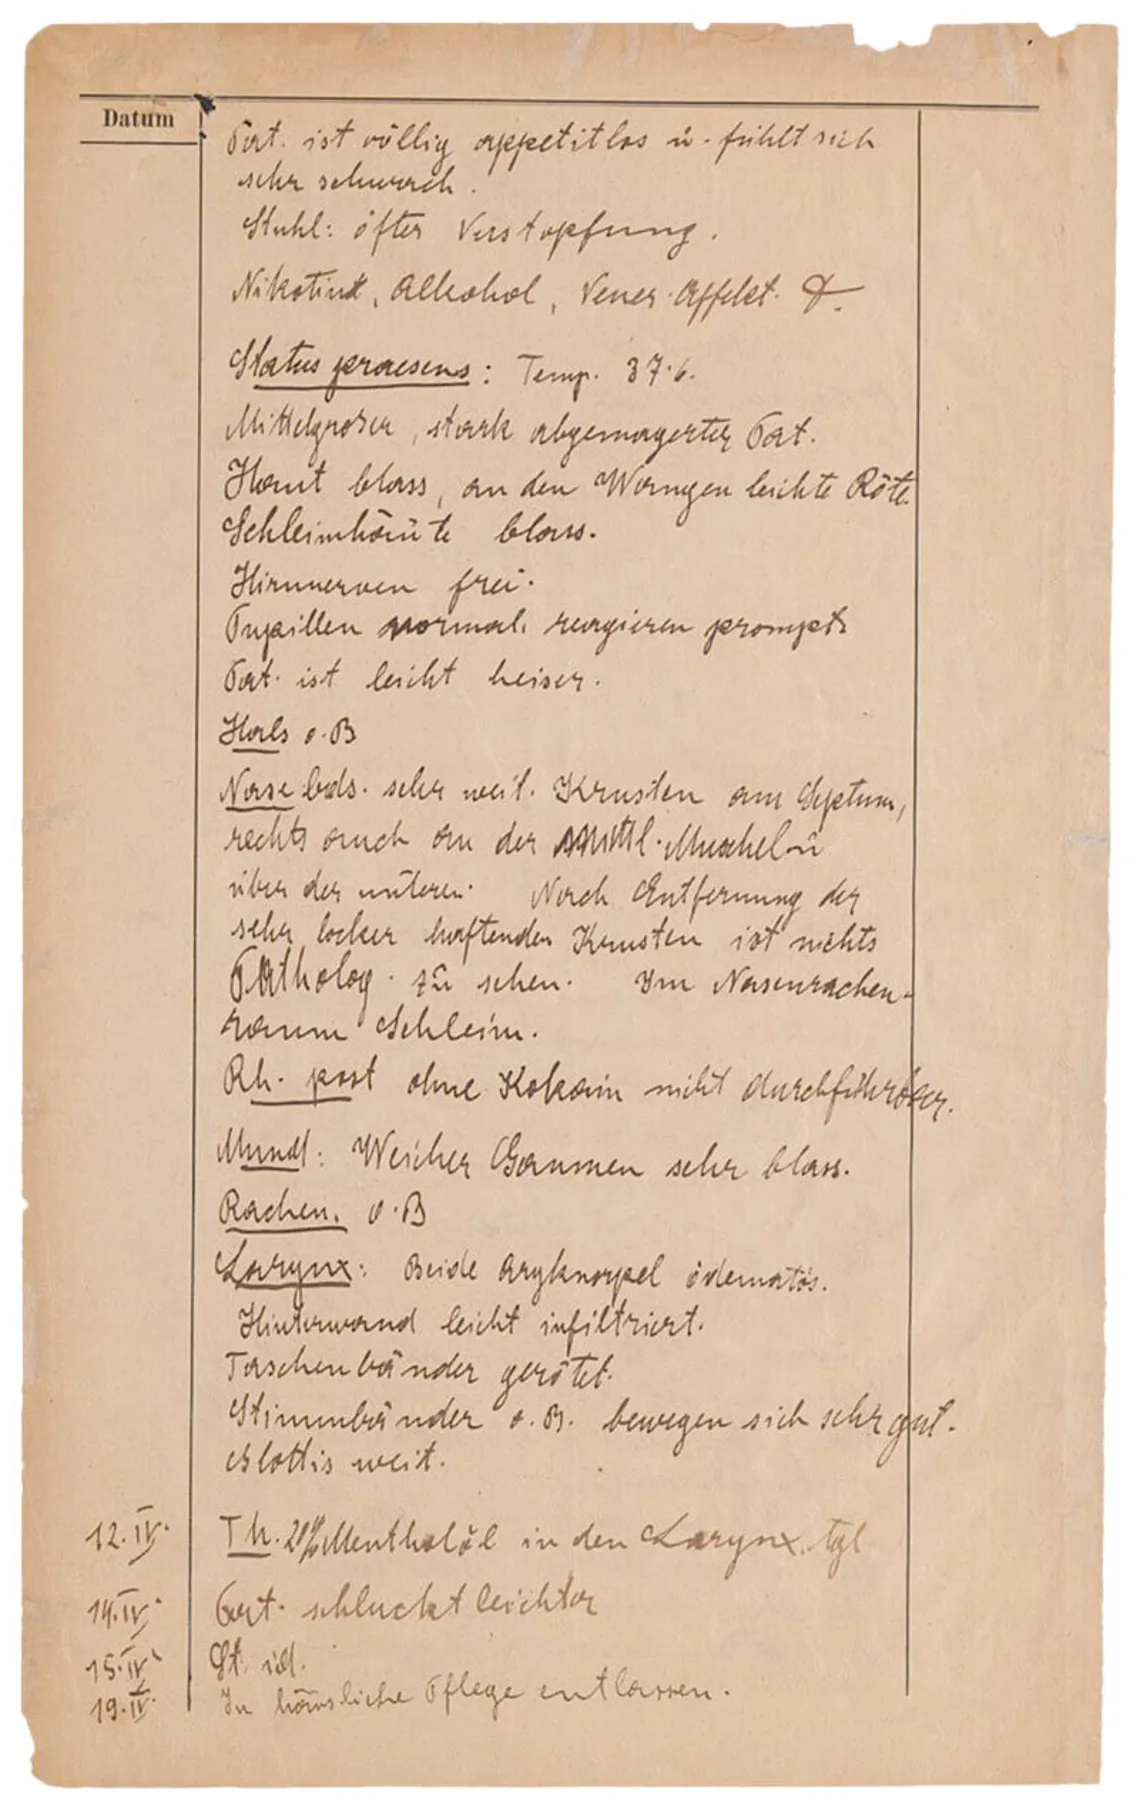 Datum
Pat. ist völlig appetitlos u. fühlt sich
sehr schwach.
Stuhl: öfter Verstopfung.
Nikotin, Alkohol, Vener. Affekt. Ø.
Status praesens: Temp. 37.6.
Mittelgroßer, stark abgemagerter Pat.
Haut blass, an den Wangen leichte Röte.
Schleimhäute blass.
Hirnnerven frei.
Pupillen normal, reagieren prompt.
Pat. ist leicht heiser.
Hals o.B
Nase bds. sehr weit. Krusten am Septum,
rechts auch an der mittl. Muschel u
über der unteren. Nach Entfernung der
sehr locker haftenden Krusten ist nichts
Patholog. zu sehen. Im Nasenrachen-
raum Schleim.
Rh. post ohne Kokain nicht durchführbar.
Mund: Weicher Gaumen sehr blass.
Rachen. o.B
Larynx: Beide Aryknorpel ödematös.
Hinterwand leicht infiltriert.
Taschenbänder gerötet.
Stimmbänder o.B. bewegen sich sehr gut.
Glottis weit.
12.IV. Th. 20% Mentholöl in den Larynx. tgl
14.IV. Pat. schluckt leichter
15.IV. St. id.
19.IV. In häusliche Pflege entlassen.